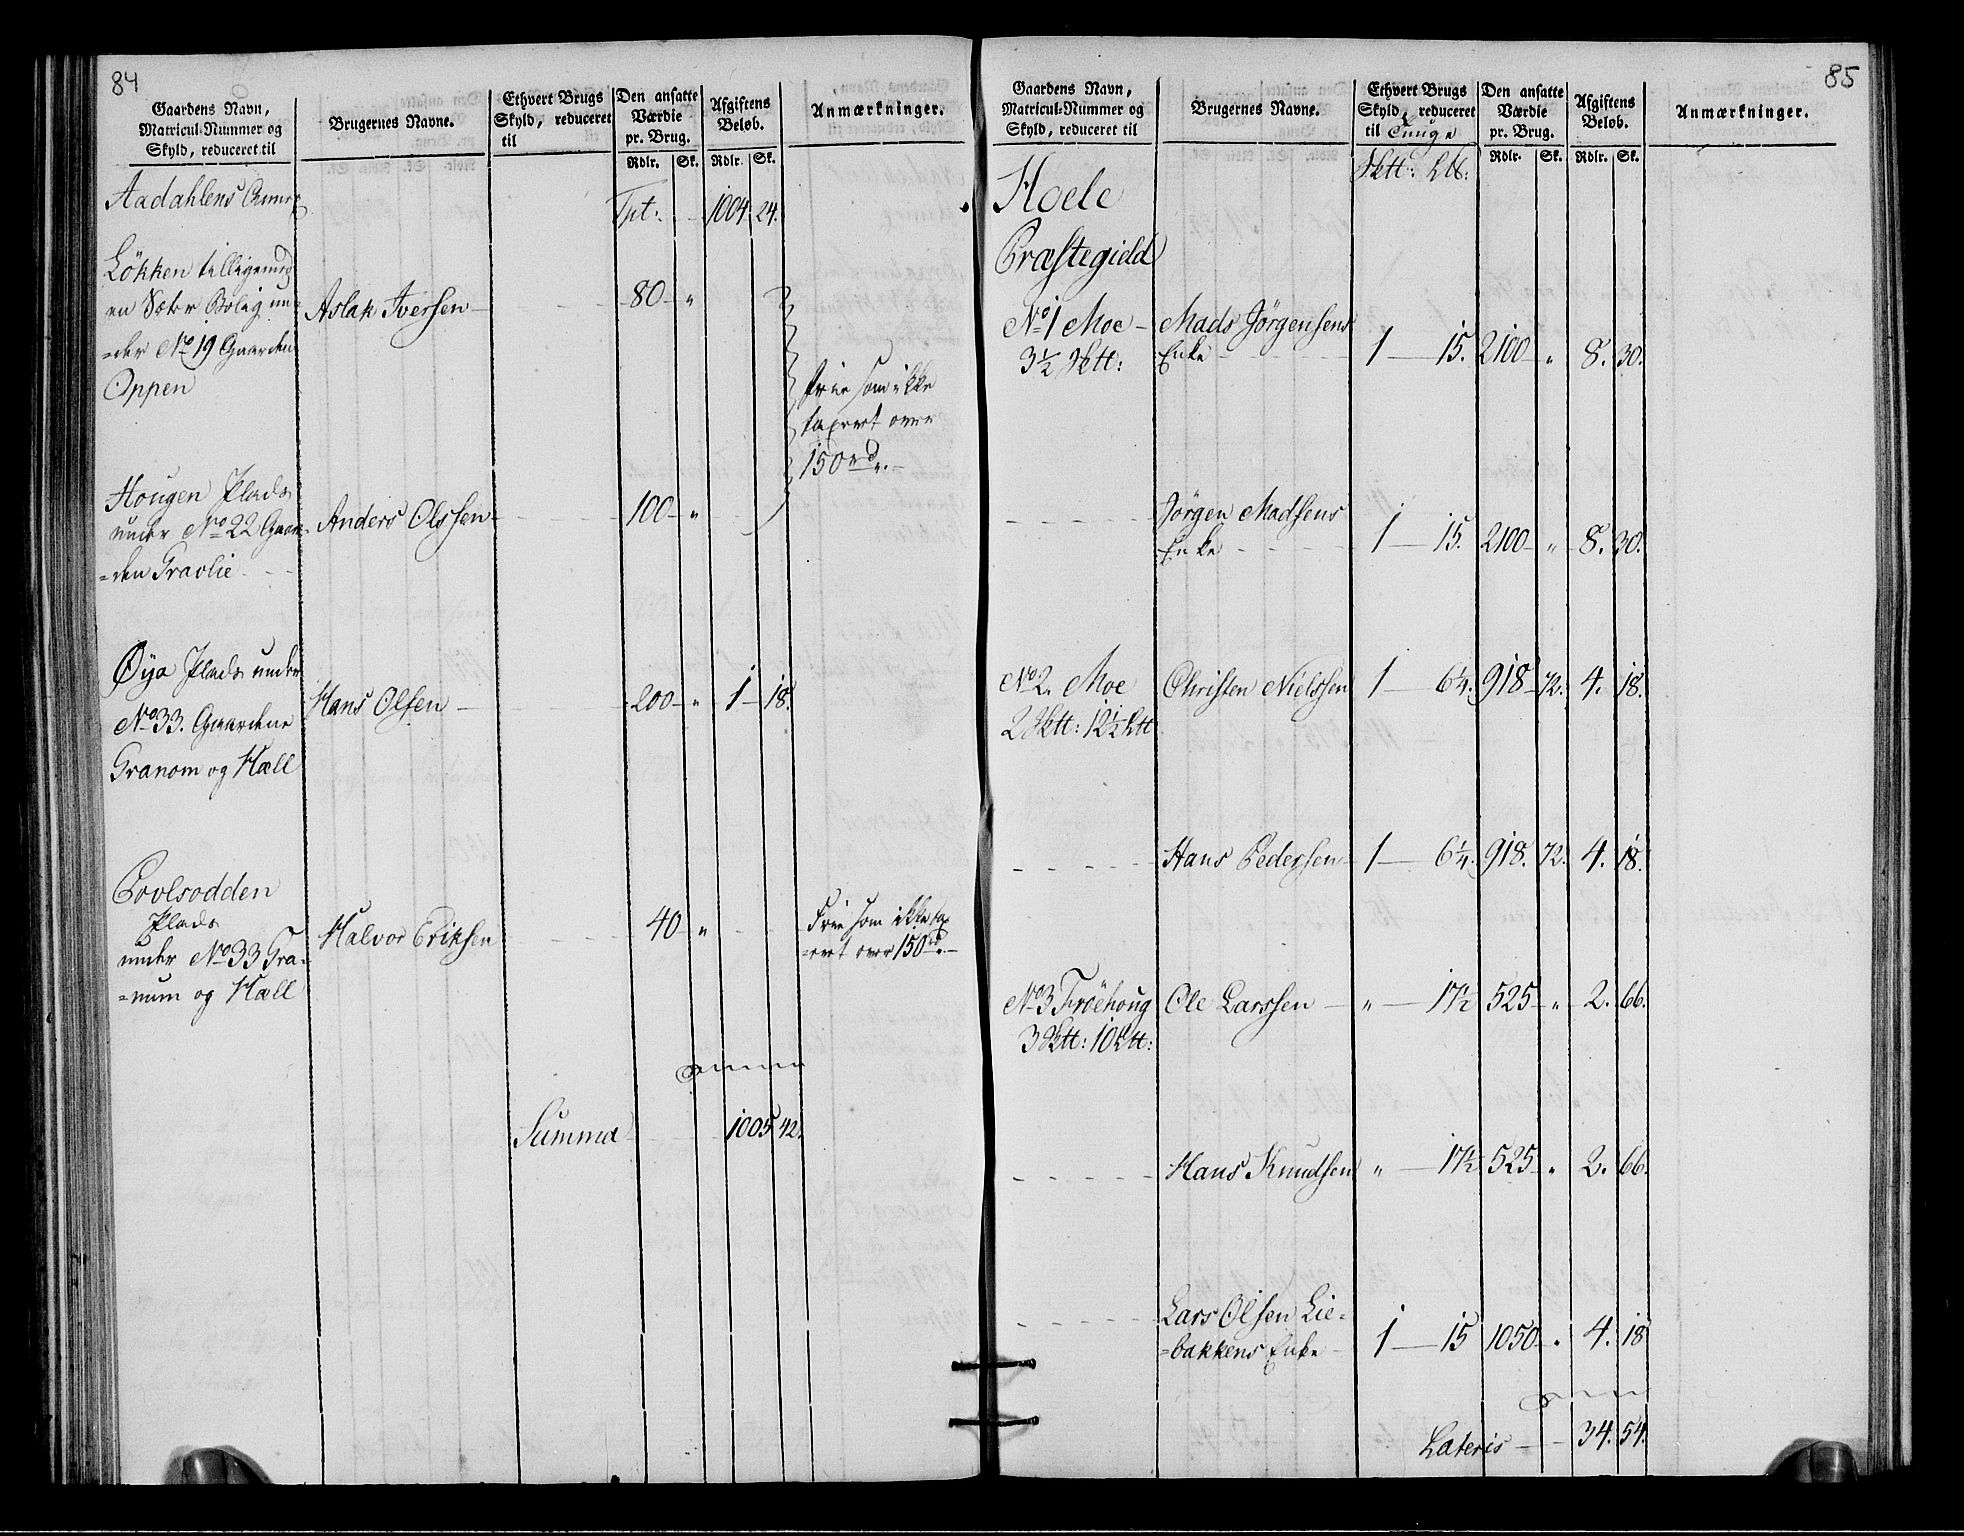 84
Gaardens Navn,
Matricul-Nummer og
Skyld, reduceret til
Brugernes Navne.
Ethvert Brugs
Skyld, reduceret
til
Den ansatte
Værdie
pr. Brug.
Rdlr. Sk.
Afgiftens
Beløb.
Rdlr. Sk.
Anmærkninger.
Aadahlens Tpt: 1004. 24.
Løkken tilligemed
en Sæter Bolig un-
=der No 19 Gaarden
Oppen
Aslak Iversen 80 "
frie som ikke
taxeret over
150 rd.
Hougen Plads
under No 22 Gaar-
=den Gravlie
Anders Olssen 100 "
Øya Plads under
No 33. Gaardene
Granom og Hæll
Hans Olsen 200 " 1 18.
Povlsodden
Plads
under No 33 Gra-
=num og Hæll
Halvor Eriksen 40 "
Frie som ikke tax
=eret over 150 rd.
Summa 1005 42.
85
Gaardens Navn,
Matricul-Nummer og
Skyld, reduceret til
Brugernes Navne.
Ethvert Brugs
Skyld, reduceret
til Tunge
Den ansatte
Værdie
pr. Brug.
Rdlr. Sk.
Afgiftens
Beløb.
Rdlr. Sk.
Anmærkninger.
Hoele
Præstegield
No 1 Moe
3½ Sktt:
Mads Jörgensens
Enke 1 15. 2100 " 8. 30.
Jörgen Madsens
Enke 1 15. 2100 " 8. 30.
No 2. Moe Christen Nielssen 1 6¼. 918 72. 4. 18.
2 Sktt: 12½ Ltt
Hans Pedersen 1 6¼. 918. 72. 4. 18.
No 3 Fröehoug Ole Larssen " 17½ 525 " 2. 66.
3 Sktt: 10 Ltt:
Hans Knudsen " 17½ 525 " 2. 66.
Lars Olsen Lie-
=bakkens Enke 1 15 1050 " 4. 18
Lateris 34. 54.